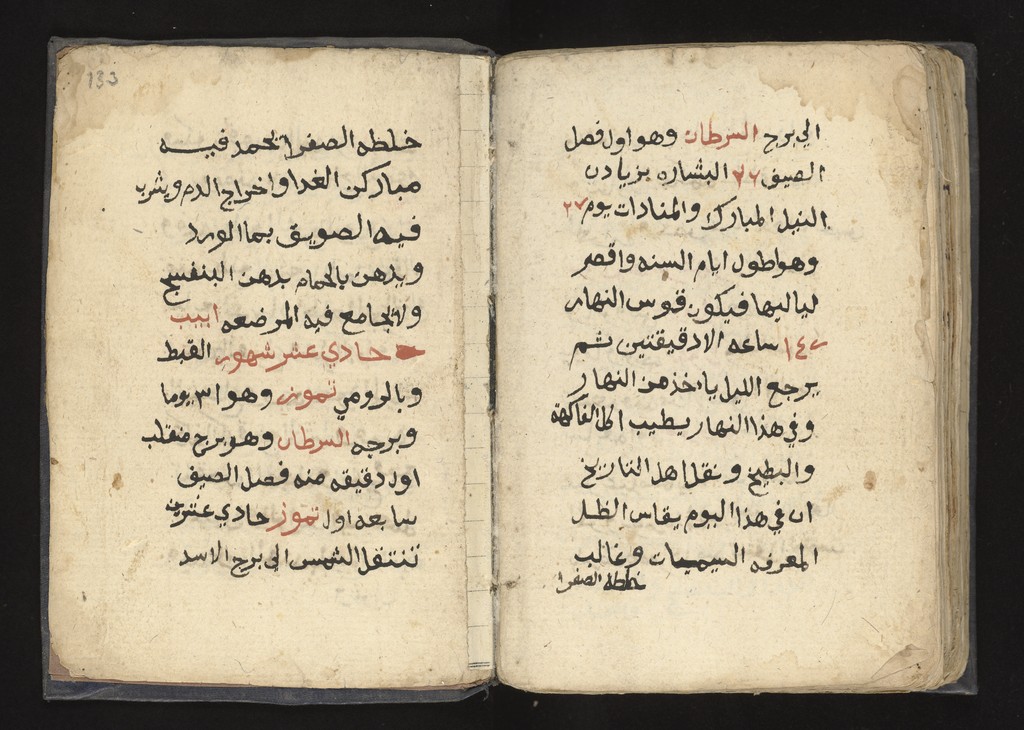 الي برج السرطان وهو اول فصل
الصيف ٢٦ البشاره بزيادت
النيل المبارك والمنادات يوم ٢٧
وهو اطول ايام السنه واقصر
لياليها فيكون قوس النهار
١٤ ساعه الا دقيقتين ثم
يرجع الليل ياخذ من النهار
وفي هذا النهار يطيب اكل الفاكهة
والبطيخ ونقل اهل التاريخ
ان في هذا اليوم يقاس الظل
المعرفه وغالب
خلطه الصفرا
133
خلطه الصفرا يحمد فيه
مباركن الغدا واخراج الدم ويشرب
فيه الصويق بما الورد
ويدهن بالحمام بدهن البنفسج
ولا يجامع فيه المرضعه ابيب
حادي عشر شهور القبط
وبالرومي تموز وهو ٣١ يوما
وبرجه السرطان وهو برج منقلب
اول دقيقه منه فصل الصيف
سابعه اول تموز حادي عشرين
تنتقل الشمس الي برج الاسد